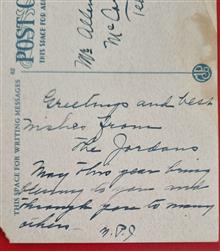 POST C
THIS SPACE FOR AD
Mr Allen
Mc Ca
Te
THIS SPACE FOR WRITING MESSAGES
Greetings and best
wishes from
The Jordans
May this year bring
blessing to you and
through you to many
others.